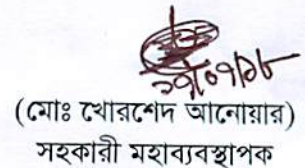 (মোঃ খোরশেদ আনোয়ার)
সহকারী মহাব্যবস্থাপক